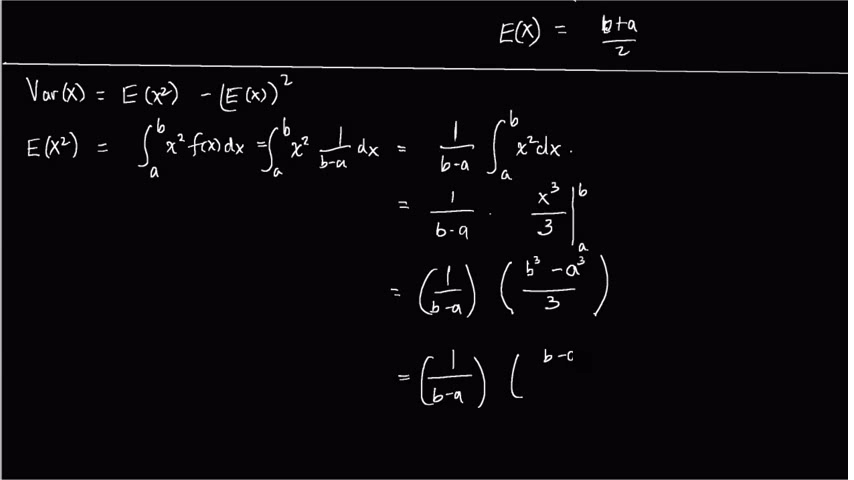 E(X) = b+a/2
Var(x) = E(x²) - (E(x))²
E(X²) = ∫ₐᵇ x² f(x) dx = ∫ₐᵇ x² 1/(b-a) dx = 1/(b-a) ∫ₐᵇ x² dx.
= 1/(b-a) · x³/3 |ₐᵇ
= (1/(b-a)) (b³ - a³/3)
= (1/(b-a)) ( b-